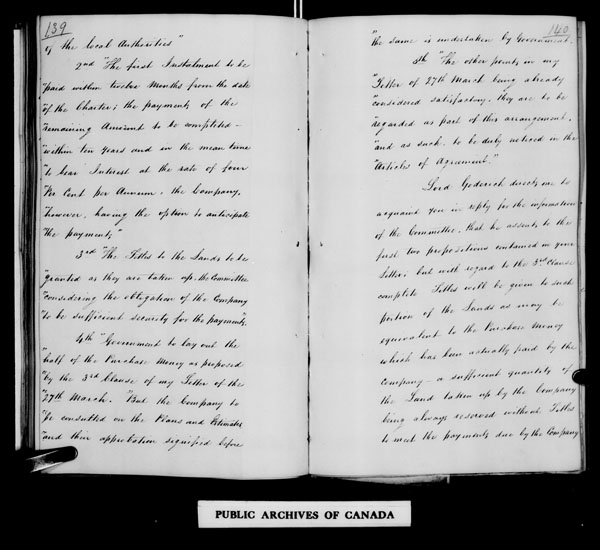 139
of the local Authorities"
2nd "The first Instalment to be
"paid within twelve Months from the date
"of the Charter; the payments of the
"remaining Amount to be completed -
"within ten years and in the mean time
"to bear Interest at the rate of four
"Per Cent per Annum, the Company,
"however, having the option to anticipate
"the payments"
3rd "The Titles to the Lands to be
"granted as they are taken up, the Committee
"considering the obligation of the Company
"to be sufficient security for the payments,
4th "Government to lay out the
"half of the Purchase Money as proposed
"by the 3rd Clause of my Letter of the
"27th March. "But the Company to
"be consulted on the Plans and Estimates
"and their approbation signified before
140
"the same is undertaken by Government.
5th "The other points in my
"Letter of 27th March being already
"considered satisfactory, they are to be
"regarded as part of this arrangement,
"and as such, to be duly noticed in the
"Articles of Agreement."
Lord Goderich directs me to
acquaint you in reply for the information
of the Committee, that he assents to the
first two propositions contained in your
Letter; but with regard to the 3rd Clause
complete Titles will be given to such
portion of the Lands as may be
equivalent to the Purchase Money
which has been actually paid by the
Company - a sufficient quantity of
the Land taken up by the Company
being always reserved without Titles
to meet the payments due by the Company
PUBLIC ARCHIVES OF CANADA